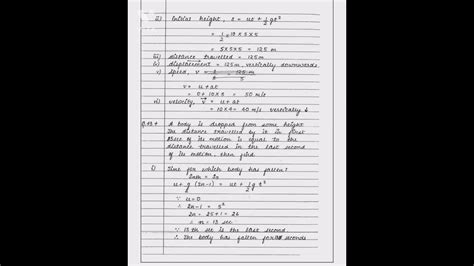 ii) initial height, s = ut + 1/2 gt²
= 1/2 × 10 × 5 × 5
= 5 × 5 × 5 = 125 m
iii) distance travelled = 125 m
iv) displacement = 125 m, vertically downwards.
v) speed, v = 125 m / 5
v = u + at
= 0 + 10 × 5 = 50 m/s
vi) velocity, v = u + at
= 10 × 4 = 40 m/s vertically ↓
A body is dropped from some height
The distance travelled by it in first
5 sec of its motion is equal to the
distance travelled in the last second
of its motion, then find
i) Time for which body has fallen?
u + g/2 (2n-1) = ut + 1/2 g t²
∵ u = 0
∴ 2n-1 = 5²
2n = 25 + 1 = 26
∴ n = 13 sec
∵ 13th sec is the last second
∴ The body has fallen for 13 seconds